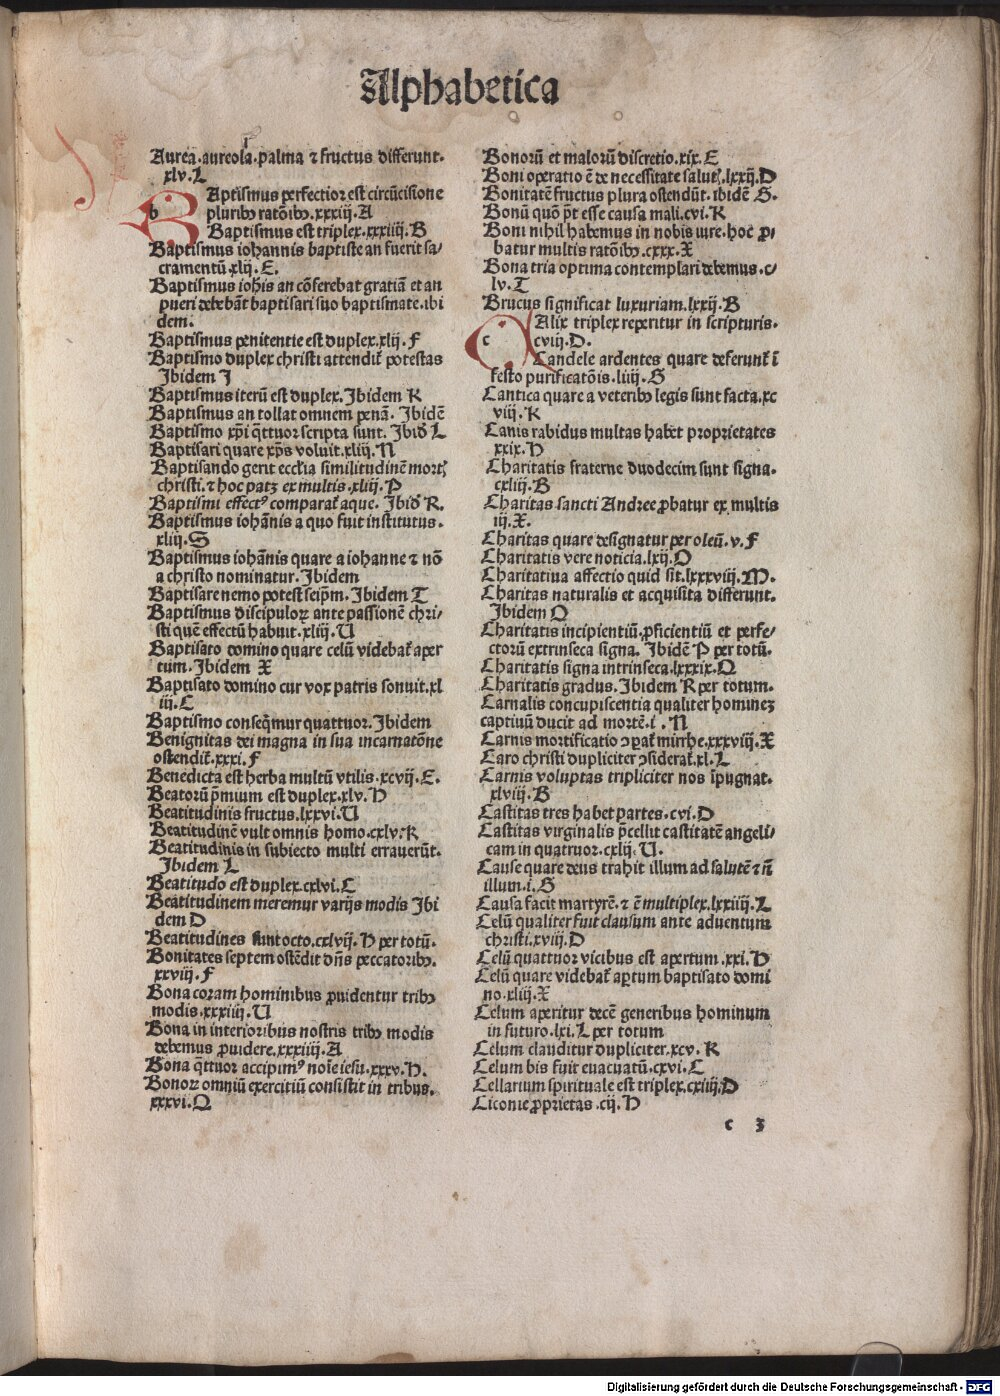 Alphabetica
Aurea.aureola.palma ⁊ fructus differunt.
xlv.L
BAptismus perfectior est circūcisione
b
pluribꝰ ratōibꝰ.xxxiij.A
Baptismus est triplex.xxxiiij.B
Baptismus iohannis baptiste an fuerit sa⸗
cramentū.xlij.E.
Baptismus ioh̄is an cōferebat gratiā et an
pueri debebāt baptisari suo baptismate.ibi
dem.
Baptismus penitentie est duplex.xlij.F
Baptismo duplex christi attendit᷑ potestas
Ibidem I
Baptismus iterū est duplex.Ibidem K
Baptismus an tollat omnem penā. Ibidē
Baptismo xp̄i q̄ttuor scripta sunt. Ibid̄ L
Baptisari quare xp̄s voluit.xliij.N
Baptisando gerit eccl̄ia similitudinē mort᷑
christi.⁊ hoc patꝫ ex multis.xliij.P
Baptismi effectꝰ comparat᷑ aque. Ibid̄ R.
Baptismus iohānis a quo fuit institutus.
xliij.S
Baptismus iohānis quare a iohanne ⁊ nō
a christo nominatur. Ibidem
Baptisare nemo potest seip̄m. Ibidem T
Baptismus discipuloꝝ ante passionē chri⸗
sti quē effectū habuit.xliij.U
Baptisato domino quare celū videbat᷑ aper
tum. Ibidem X
Baptisato domino cur vox patris sonuit.xl
iij.C
Baptismo conseq̄mur quattuor. Ibidem
Benignitas dei magna in sua incarnatōne
ostendit᷑.xxxi.F
Benedicta est herba multū vtilis.xcvij.E.
Beatorū p̄mium est duplex.xlv.H
Beatitudinis fructus.lxxvi.U
Beatitudinē vult omnis homo.cxlv.K
Beatitudinis in subiecto multi errauerūt.
Ibidem L
Beatitudo est duplex.cxlvi.C
Beatitudinem meremur varijs modis Ibi
dem D
Beatitudines sunt octo.cxlvij.H per totū.
Bonitates septem ostēdit dn̄s peccatoribꝰ.
xxviij.F
Bona coram hominibus ꝓuidentur tribꝰ
modis.xxxiiij.U
Bona in interioribus nostris tribꝰ modis
debemus ꝓuidere.xxxiiij.A
Bona q̄ttuor accipimꝰ noīe iesu.xxxv.H.
Bonoꝝ omniū exercitiū consistit in tribus.
xxxvi.Q
Bonorū et malorū discretio.xix.E
Boni operatio ē de necessitate salut᷑.lxxij.D
Bonitatē fructus plura ostendūt.ibidē S.
Bonū quō p̄t esse causa mali.cvi.K
Boni nihil habemus in nobis iure.hoc ꝓ⸗
batur multis ratōibꝰ.cxxx.X
Bona tria optima contemplari debemus.c⸗
lv.T
Brucus significat luxuriam.lxxij.B
CAlix triplex reperitur in scripturis.
c
cviij.D.
Candele ardentes quare deferunt᷑ ī
festo purificatōis.liiij.S
Cantica quare a veteribꝰ legis sunt facta.xc
viij.K
Canis rabidus multas habet proprietates
xxix.H
Charitatis fraterne duodecim sunt signa.
cxliij.B
Charitas sancti Andree ꝓbatur ex multis
iij.X.
Charitas quare designatur per oleū.v.F
Charitatis vere noticia.lxij.O
Charitatiua affectio quid sit.lxxxviij.M.
Charitas naturalis et acquisita differunt.
Ibidem O
Charitatis incipientiū.ꝓficientiū et perfe⸗
ctorū extrinseca signa. Ibidē P per totū.
Charitatis signa intrinseca.lxxxix.Q
Charitatis gradus. Ibidem R per totum.
Carnalis concupiscentia qualiter hominez
captiuū ducit ad mortē.i.N
Carnis mortificatio ↄꝑat᷑ mirrhe.xxxviij.X
Caro christi dupliciter ↄsiderat᷑.xl.L
Carnis voluptas tripliciter nos īpugnat.
xlviij.B
Castitas tres habet partes.cvi.D
Castitas virginalis p̄cellit castitatē angeli⸗
cam in quatruor.cxlij.U.
Cause quare deus trahit illum ad salutē ⁊ n̄
illum.i.S
Causa facit martyrē.⁊ ē multiplex.lxxiiij.L
Celū qualiter fuit clausum ante aduentum
christi.xviij.D
Celū quattuor vicibus est apertum.xxi.H
Celū quare videbat᷑ aꝑtum baptisato domi
no.xliij.X
Celum aperitur decē generibus hominum
in futuro.lxi.L per totum
Celum clauditur dupliciter.xcv.K
Celum bis fuit euacuatū.cxvi.C
Cellarium spirituale est triplex.cxiiij.D
Ciconie ꝓprietas.cij.H
c 3
Digitalisierung gefördert durch die Deutsche Forschungsgemeinschaft - DFG